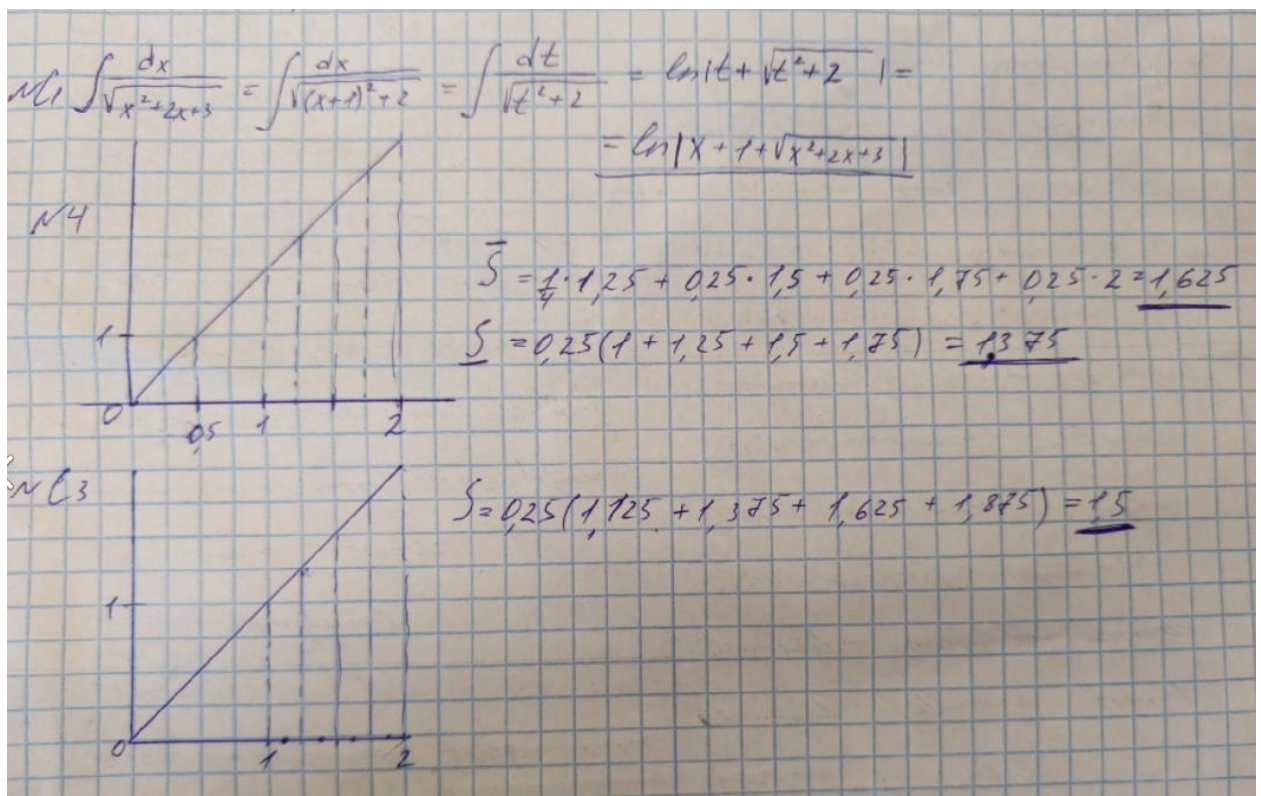 №1 ∫ dx/√(x²+2x+3) = ∫ dx/√((x+1)²+2) = ∫ dt/√(t²+2) = ln|t+√(t²+2)| =
= ln|x+1+√(x²+2x+3)|
№4
S̅ = 1/4·1,25 + 0,25·1,5 + 0,25·1,75 + 0,25·2 = 1,625
1
S̲ = 0,25(1 + 1,25 + 1,5 + 1,75) = 1,375
0 0,5 1 2
№3
S = 0,25(1,125 + 1,375 + 1,625 + 1,875) = 1,5
1
0 1 2